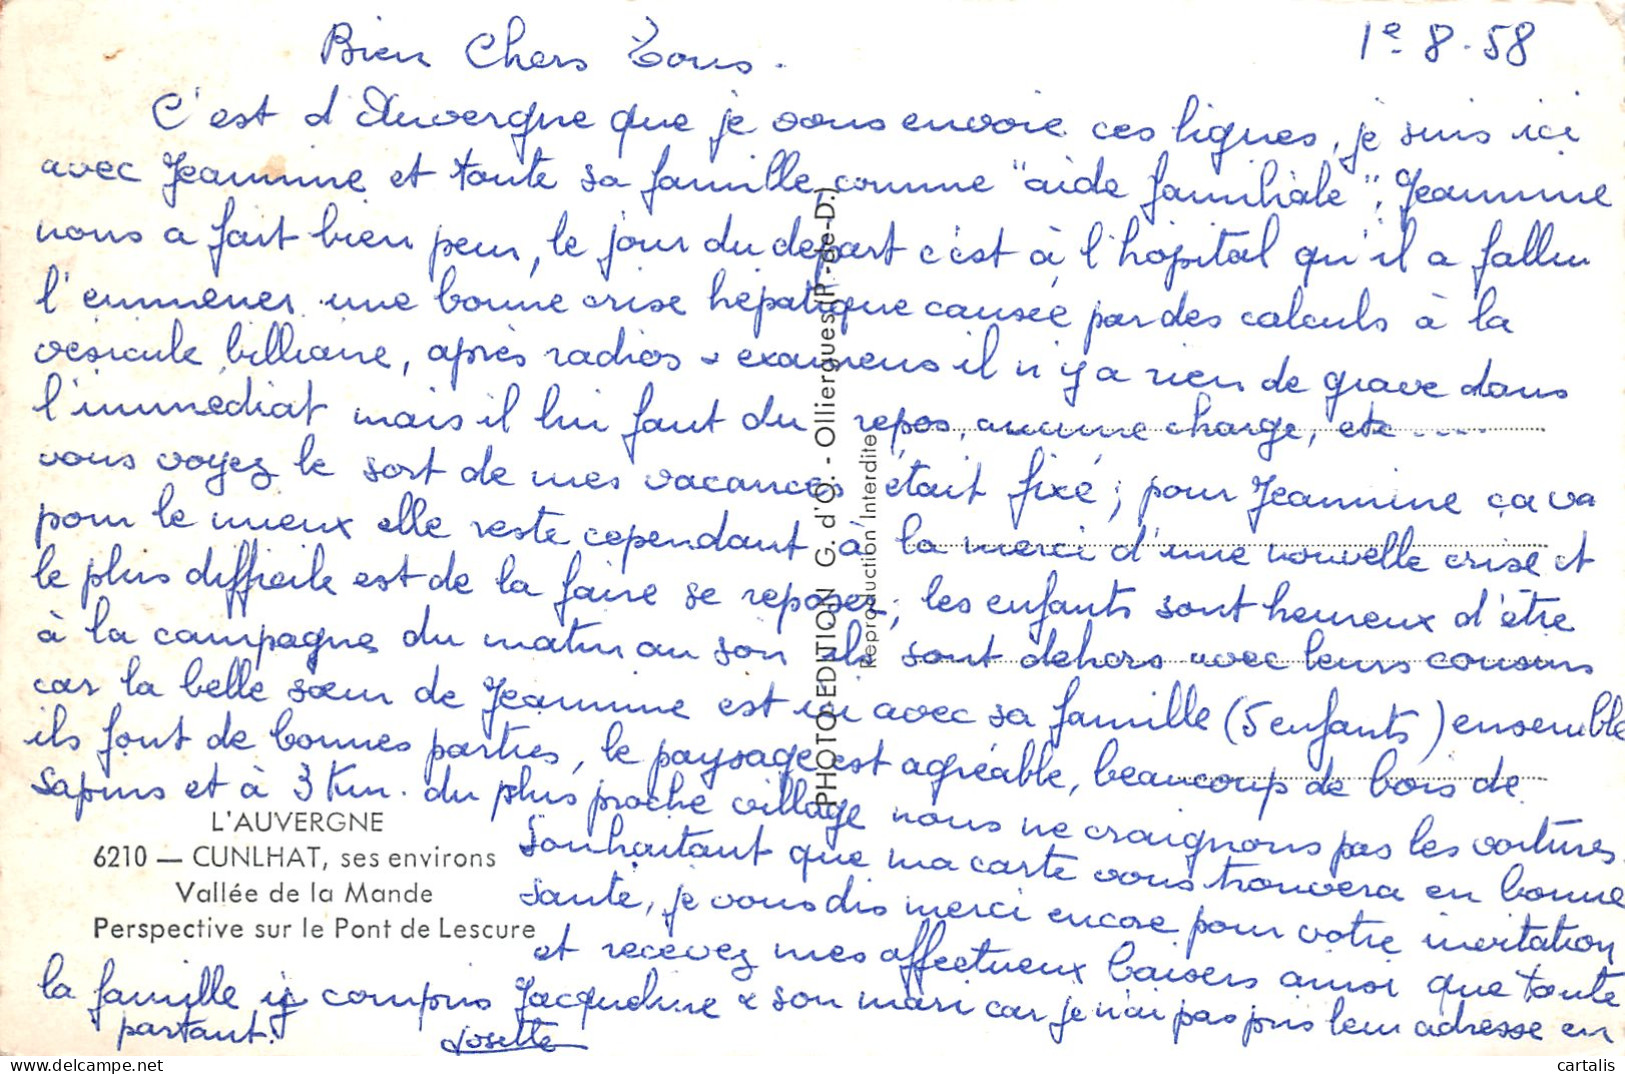 1e 8.58
Bien Chers Tous.
C'est d'Auvergne que je vous envoie ces lignes, je suis ici
avec Jeannine et toute sa famille comme "aide familiale", Jeannine
nous a fait bien peur, le jour du départ c'est à l'hôpital qu'il a fallu
l'emmener une bonne crise hépatique causée par des calculs à la
vésicule billiaire, après radios & examens il n'y a rien de grave dans
l'immédiat mais il lui faut du repos, aucune charge, etc ....
vous voyez le sort de mes vacances était fixé ; pour Jeannine ça va
pour le mieux elle reste cependant à la merci d'une nouvelle crise et
le plus difficile est de la faire se reposer ; les enfants sont heureux d'être
à la campagne du matin au soir ils sont dehors avec leurs cousins
car la belle sœur de Jeannine est ici avec sa famille (5 enfants) ensemble
ils font de bonnes parties, le paysage est agréable, beaucoup de bois de
sapins et à 3 Km. du plus proche village nous ne craignons pas les voitures.
Souhaitant que ma carte vous trouvera en bonne
santé, je vous dis merci encore pour votre invitation
et recevez mes affectueux baisers ainsi que toute
la famille y compris Jacqueline & son mari car je n'ai pas pris leur adresse en
partant.
Josette
L'AUVERGNE
6210 — CUNLHAT, ses environs
Vallée de la Mande
Perspective sur le Pont de Lescure
PHOTO-EDITION G. d'O. - Olliergues (P.-de-D.)
Reproduction Interdite
cartalis